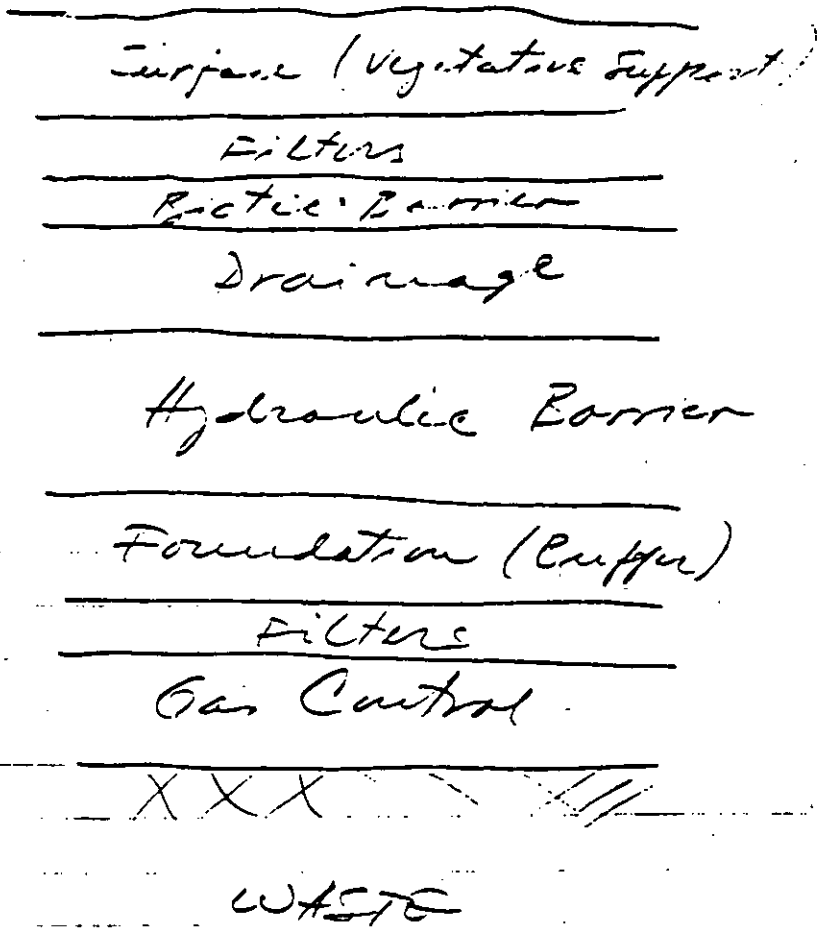 Surface (Vegetative Support)
Filters
Biotic Barrier
Drainage
Hydraulic Barrier
Foundation (Buffer)
Filters
Gas Control
XXX
WASTE